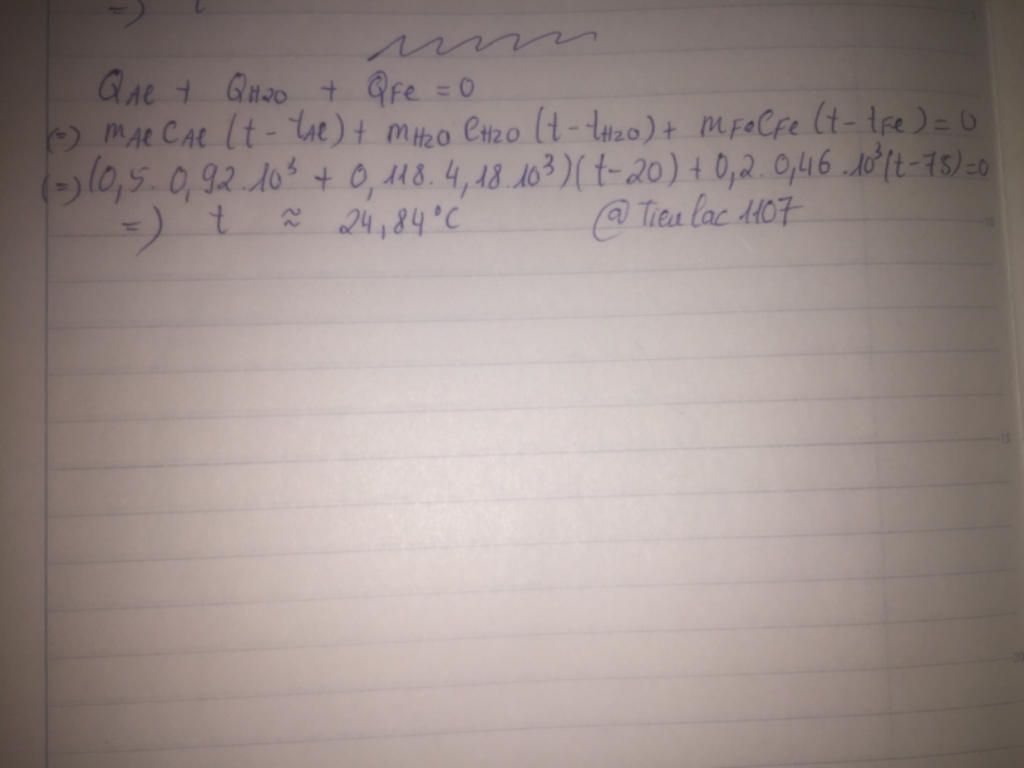 =)
Q Al + Q H2O + Q Fe = 0
(=) m Al C Al (t - t Al) + m H2O C H2O (t - t H2O) + m Fe C Fe (t - t Fe) = 0
(=) (0,5. 0,92.10³ + 0,118. 4,18.10³)(t-20) + 0,2. 0,46.10³(t-75)=0
=) t ≈ 24,84°C @Tieulac1107